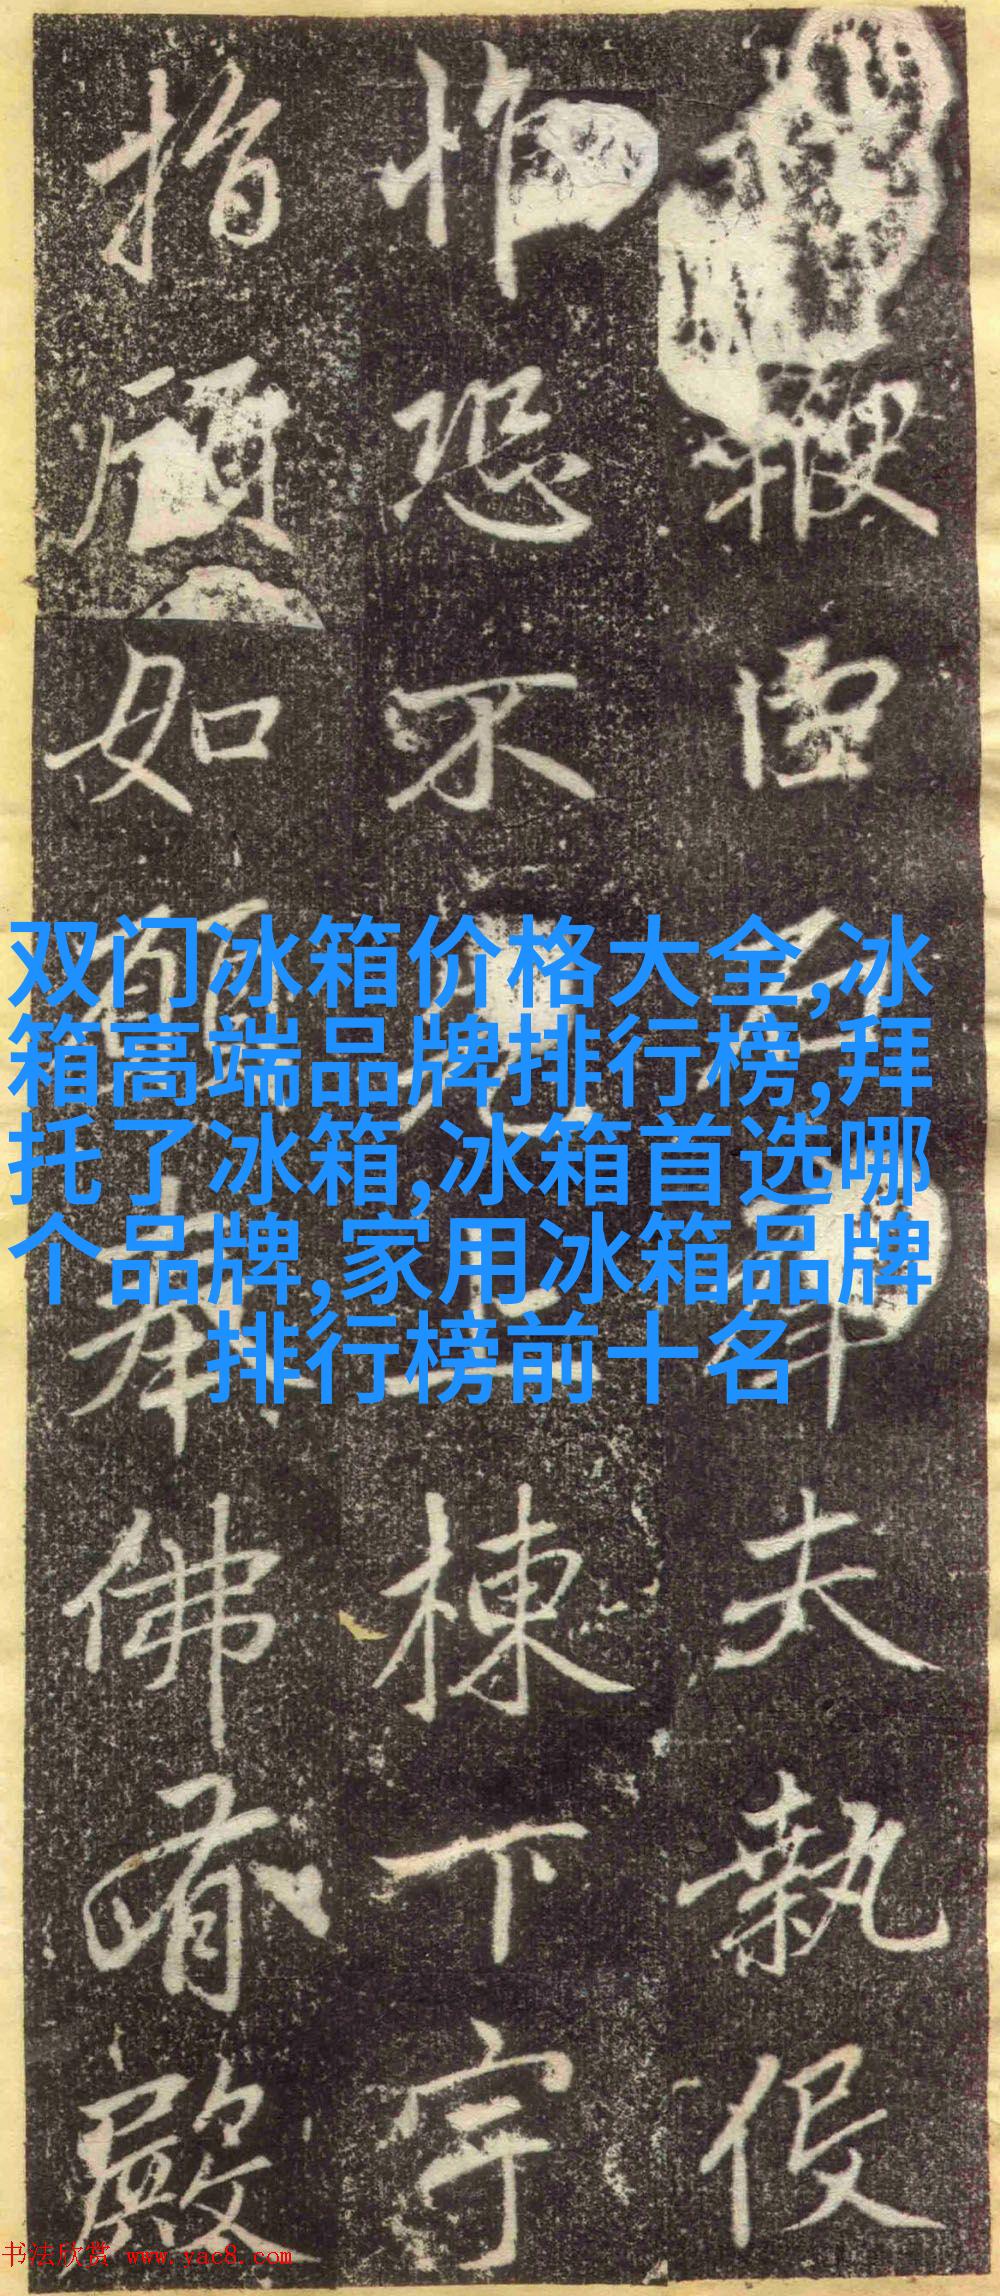 夫執役
怍恐不克上棟下宇
指顧如願奉佛有殿
双门冰箱价格大全,冰
箱高端品牌排行榜,拜
托了冰箱,冰箱首选哪
个品牌,家用冰箱品牌
排行榜前十名
书法欣赏 www.yac8.com